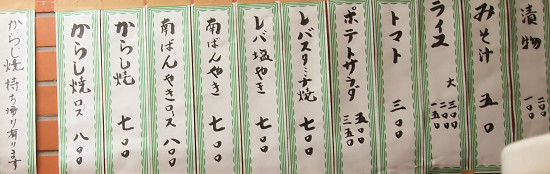 漬物 二〇〇 一五〇
みそ汁 五〇
ライス 大 三〇〇 二〇〇 一五〇
トマト 三〇〇
ポテトサラダ 五〇〇 三五〇
レバスタミナ焼 七〇〇
レバ塩やき 七〇〇
南ばんやき 七〇〇
南ばんやきロース 八〇〇
からし焼 七〇〇
からし焼ロース 八〇〇
からし焼持ち帰り有ります